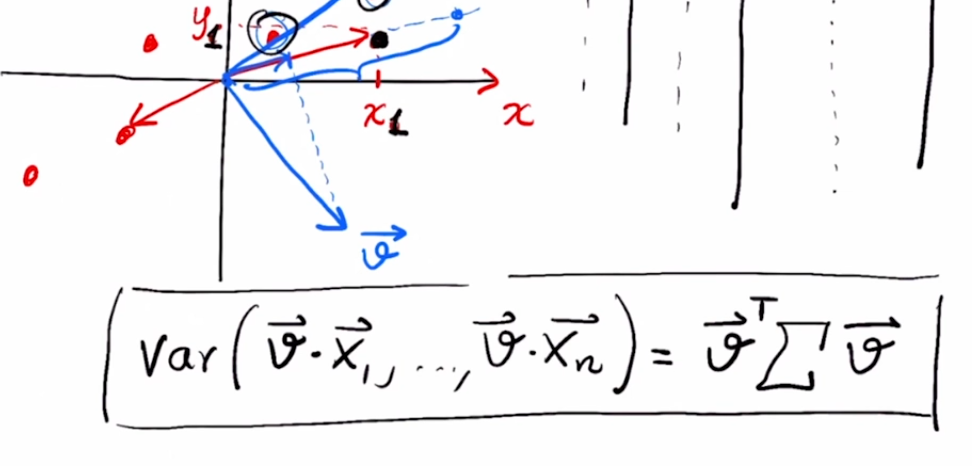 y₁
x₁ x
v⃗
Var(v⃗·x⃗₁, ..., v⃗·x⃗ₙ) = v⃗ᵀ Σ v⃗